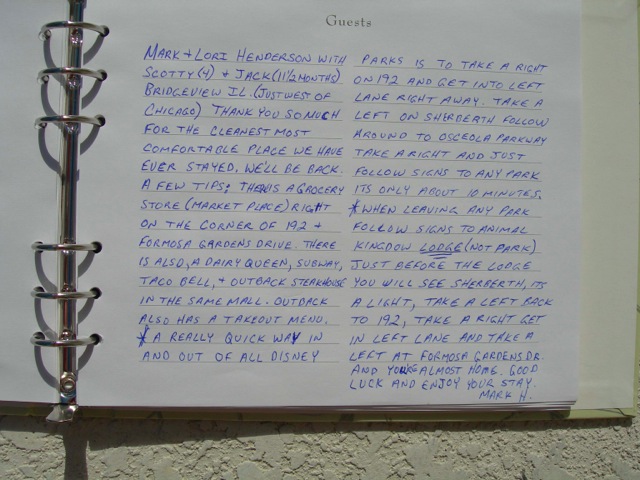 Guests
MARK + LORI HENDERSON WITH
SCOTTY (4) + JACK (11 1/2 MONTHS)
BRIDGEVIEW IL. (JUST WEST OF
CHICAGO) THANK YOU SO MUCH
FOR THE CLEANEST MOST
COMFORTABLE PLACE WE HAVE
EVER STAYED, WE'LL BE BACK.
A FEW TIPS: THERE IS A GROCERY
STORE (MARKET PLACE) RIGHT
ON THE CORNER OF 192 +
FORMOSA GARDENS DRIVE. THERE
IS ALSO, A DAIRY QUEEN, SUBWAY,
TACO BELL, + OUTBACK STEAKHOUSE
IN THE SAME MALL. OUTBACK
ALSO HAS A TAKEOUT MENU.
* A REALLY QUICK WAY IN
AND OUT OF ALL DISNEY
PARKS IS TO TAKE A RIGHT
ON 192 AND GET INTO LEFT
LANE RIGHT AWAY. TAKE A
LEFT ON SHERBERTH FOLLOW
AROUND TO OSCEOLA PARKWAY
TAKE A RIGHT AND JUST
FOLLOW SIGNS TO ANY PARK
ITS ONLY ABOUT 10 MINUTES.
* WHEN LEAVING ANY PARK
FOLLOW SIGNS TO ANIMAL
KINGDOW LODGE (NOT PARK)
JUST BEFORE THE LODGE
YOU WILL SEE SHERBERTH, ITS
A LIGHT, TAKE A LEFT BACK
TO 192, TAKE A RIGHT GET
IN LEFT LANE AND TAKE A
LEFT AT FORMOSA GARDENS DR.
AND YOU'RE ALMOST HOME. GOOD
LUCK AND ENJOY YOUR STAY.
MARK H.